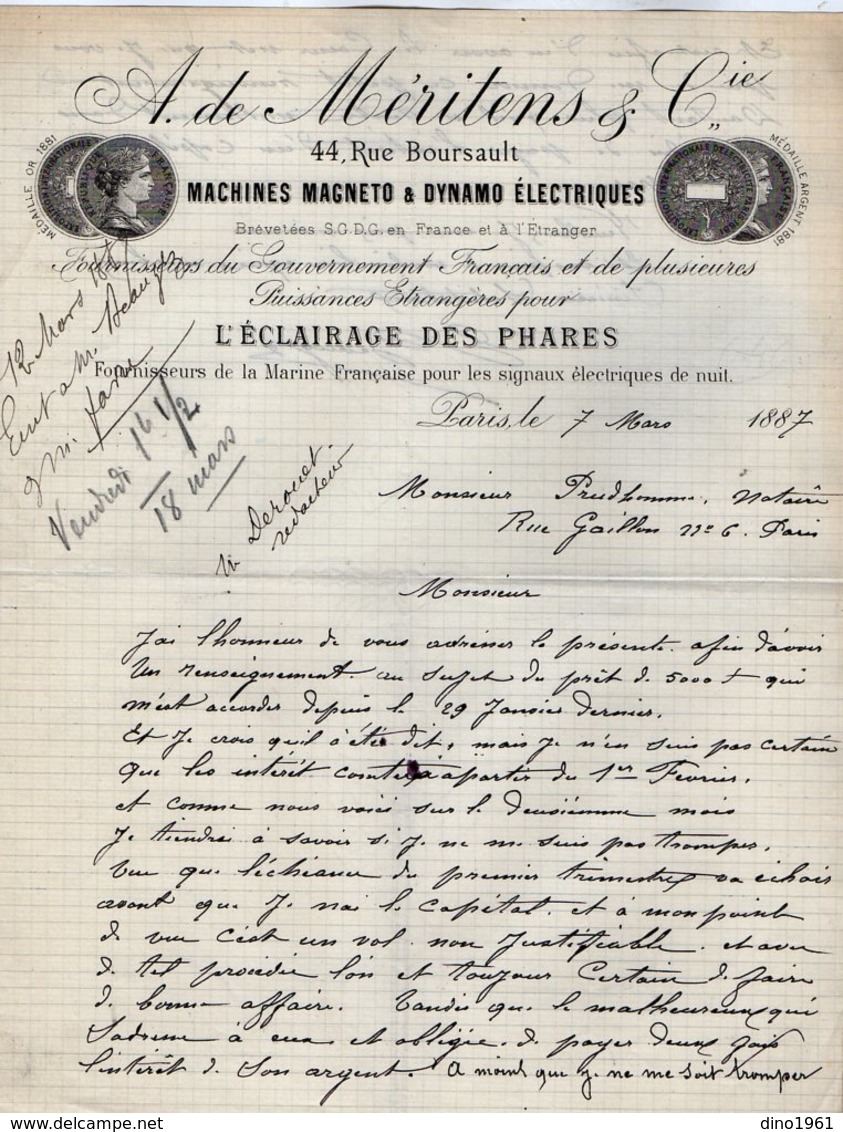 A. de Méritens & Cie
44, Rue Boursault
MACHINES MAGNETO & DYNAMO ÉLECTRIQUES
Brévetées S.G.D.G. en France et à l'Étranger
MÉDAILLE OR 1881
MÉDAILLE ARGENT 1881
Fournisseurs du Gouvernement Français et de plusieures
Puissances Etrangères pour
L'ÉCLAIRAGE DES PHARES
Fournisseurs de la Marine Française pour les signaux électriques de nuit.
12 Mars
Vendredi
18 mars
Derouet
redacteur
Paris, le 7 Mars 1887
Monsieur Prudhomme, Notaire
Rue Gaillon n° 6. Paris
Monsieur
J'ai l'honneur de vous adresser la présente afin d'avoir
Un renseignement au sujet du prêt de 5000 f qui
m'est accorder depuis le 29 Janvier dernier.
Et Je crois qu'il à été dit, mais Je n'en suis pas certain
que les intérêt comte à apartir du 1er Fevrier.
et comme nous voici sur le deusiémme mois
Je tiendrai à savoir si Je ne me suis pas tromper.
Vue que l'échéance du premier trimestre va échois
avant que Je n'ai le capital. et à mon point
de vue c'est un vol non Justifiable. et avec
de tel procédée l'on et toujour Certain de faire
de bonne affaire. Tandis que le malheureux qui
S'adresse à eux et obligée de payer deux fois
l'intérêt de Son argent. A moins que Je ne me soit tromper
dino1961